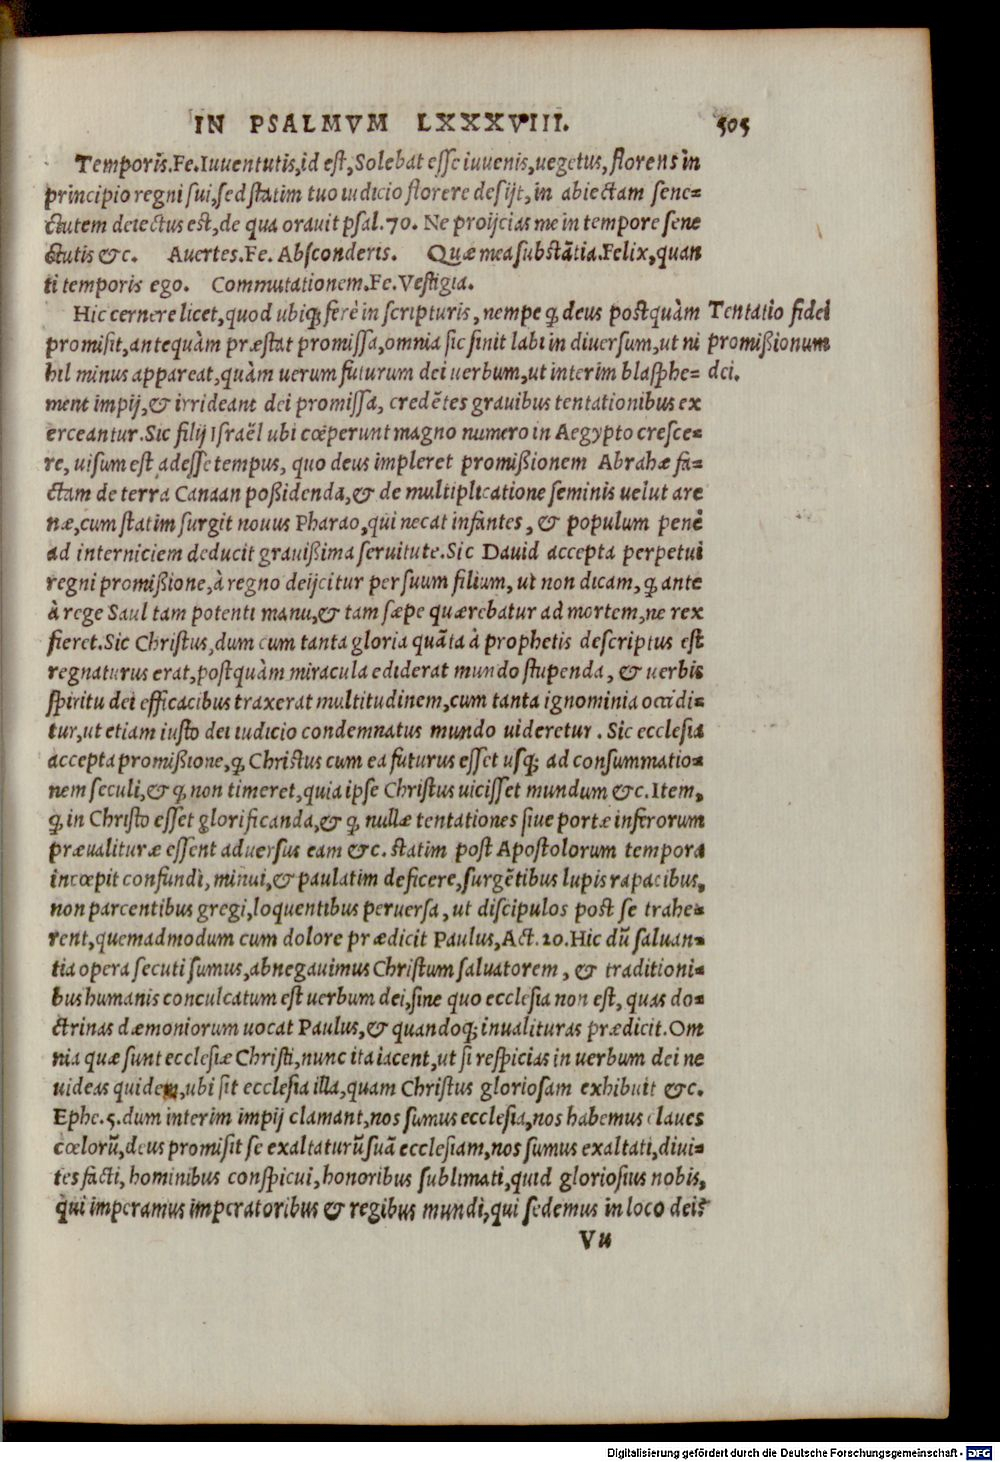 IN PSALMVM LXXXVIII. 505
Temporis.Fe.Iuuentutis,id est,Solebat esse iuuenis,uegetus,florens in
principio regni sui,sed statim tuo iudicio florere desijt,in abiectam sene-
ctutem deiectus est,de qua orauit psal.70. Ne proijcias me in tempore sene
ctutis &c. Auertes.Fe.Absconderis. Quæ mea substātia.Felix,quan
ti temporis ego. Commutationem.Fe.Vestigia.
Hic cernere licet,quod ubiq; ferè in scripturis, nempe ꝙ deus postquàm
promisit,antequàm præstat promissa,omnia sic sinit labi in diuersum,ut ni
hil minus appareat,quàm uerum futurum dei uerbum,ut interim blasphe-
ment impij,& irrideant dei promissa, credētes grauibus tentationibus ex
erceantur.Sic filij Israël ubi cœperunt magno numero in Aegypto cresce-
re, uisum est adesse tempus, quo deus impleret promißionem Abrahæ fa-
ctam de terra Canaan poßidenda,& de multiplicatione seminis uelut are
næ,cum statim surgit nouus Pharao,qui necat infantes, & populum penè
ad interniciem deducit grauißima seruitute.Sic Dauid accepta perpetui
regni promißione,à regno deijcitur per suum filium, ut non dicam, ꝙ ante
à rege Saul tam potenti manu,& tam sæpe quærebatur ad mortem,ne rex
fieret.Sic Christus,dum cum tanta gloria quāta à prophetis descriptus est
regnaturus erat,postquàm miracula ediderat mundo stupenda, & uerbis
spiritu dei efficacibus traxerat multitudinem,cum tanta ignominia occidi-
tur,ut etiam iusto dei iudicio condemnatus mundo uideretur. Sic ecclesia
accepta promißione,ꝙ Christus cum ea futurus esset usq; ad consummatio-
nem seculi,& ꝙ non timeret,quia ipse Christus uicisset mundum &c.Item,
ꝙ in Christo esset glorificanda,& ꝙ nullæ tentationes siue portæ inferorum
præualituræ essent aduersus eam &c. statim post Apostolorum tempora
incœpit confundi, minui,& paulatim deficere,surgētibus lupis rapacibus,
non parcentibus gregi,loquentibus peruersa, ut discipulos post se trahe-
rent,quemadmodum cum dolore prædicit Paulus,Act.20.Hic dū saluan-
tia opera secuti sumus,abnegauimus Christum saluatorem, & traditioni-
bus humanis conculcatum est uerbum dei,sine quo ecclesia non est, quas do-
ctrinas dæmoniorum uocat Paulus,& quandoq; inualituras prædicit.Om
nia quæ sunt ecclesiæ Christi,nunc ita iacent,ut si respicias in uerbum dei ne
uideas quidem,ubi sit ecclesia illa,quam Christus gloriosam exhibuit &c.
Ephe.5.dum interim impij clamant,nos sumus ecclesia,nos habemus claues
cœlorū,deus promisit se exaltaturū suā ecclesiam,nos sumus exaltati,diui-
tes facti, hominibus conspicui,honoribus sublimati,quid gloriosius nobis,
qui imperamus imperatoribus & regibus mundi,qui sedemus in loco dei?
Vu
Tentatio fidei
promißionum
dei.
Digitalisierung gefördert durch die Deutsche Forschungsgemeinschaft - DFG